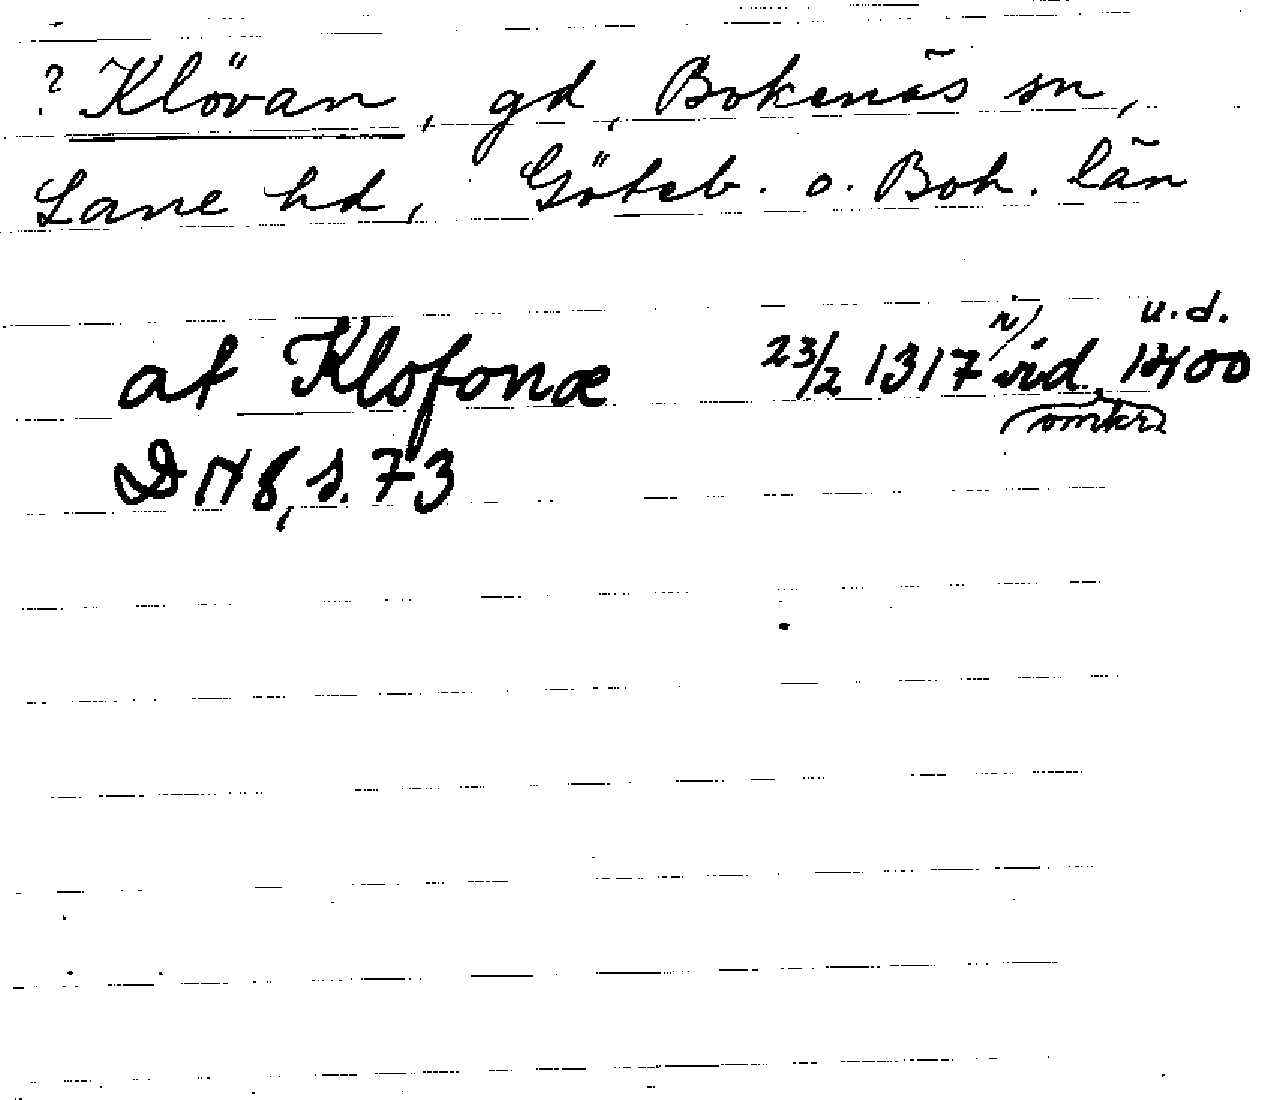 ? Klövan, gd, Bokenäs sn,
Lane hd, Göteb. o. Boh. län
at Klofonæ 23/2 1317 i) vid 1400 u.d.
omkr
DN 8, s. 73